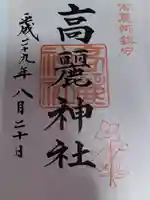 高麗神社
平成二十九年八月二十日